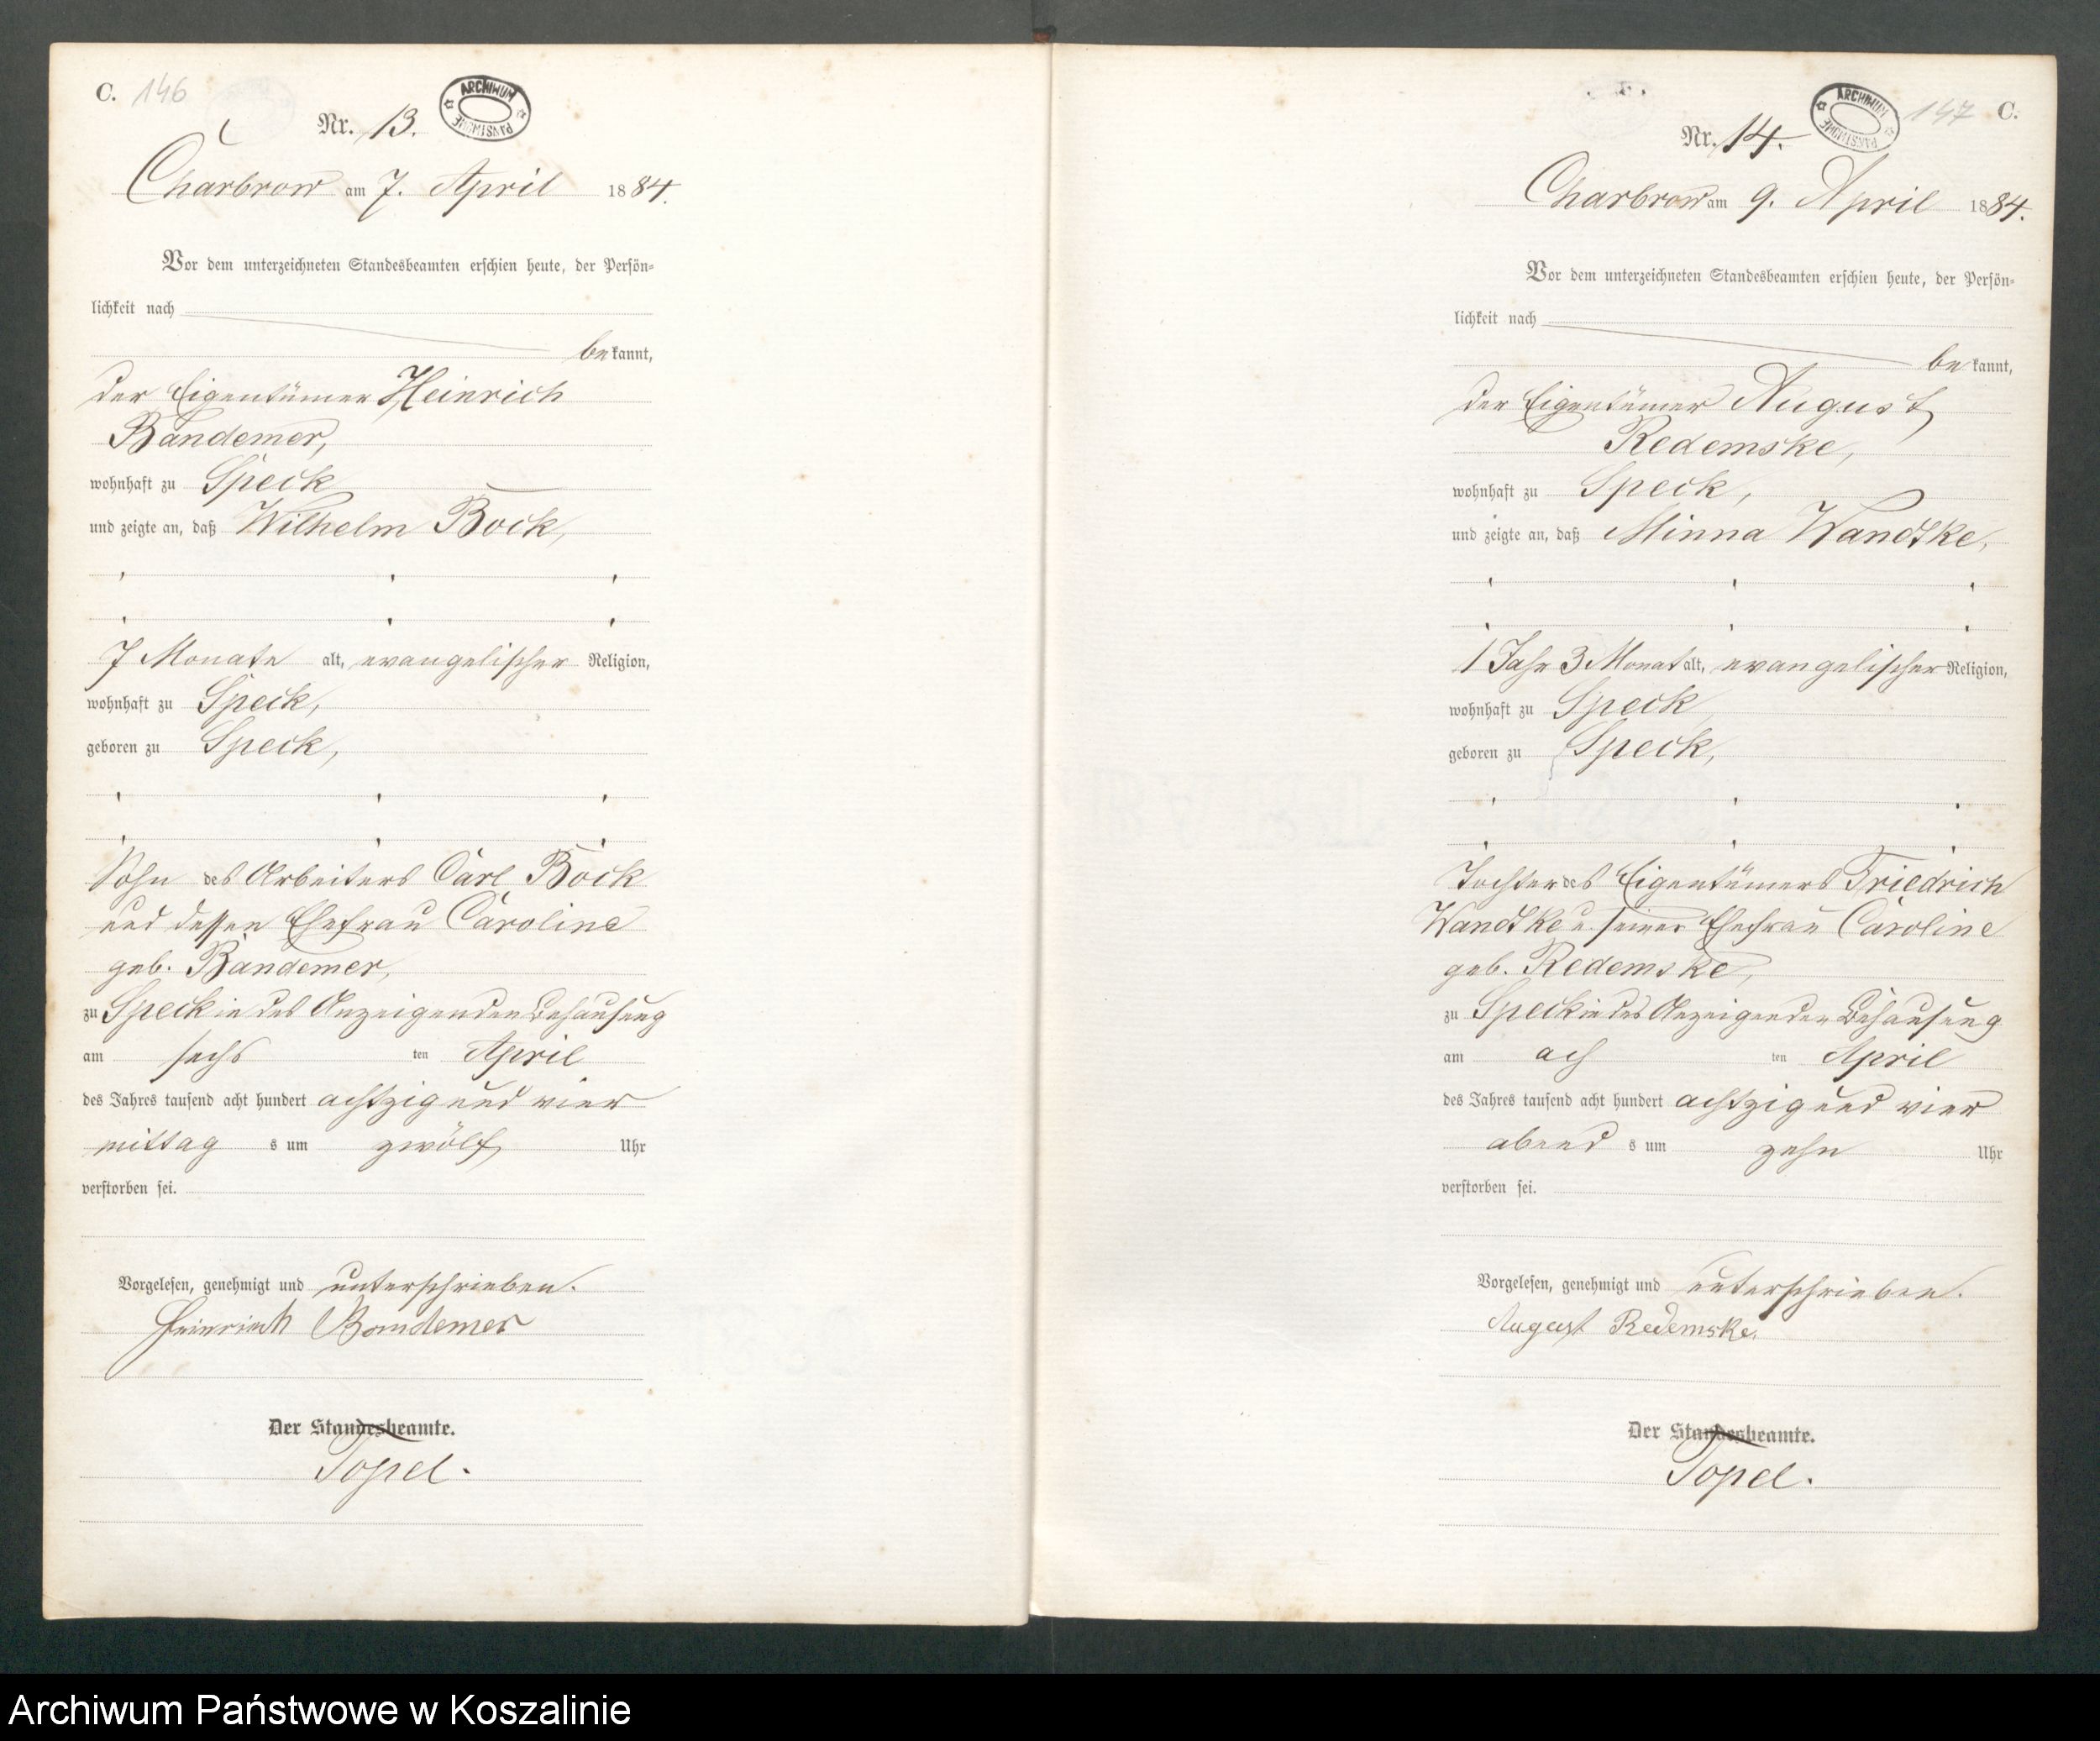 C. 146
Nr. 13.
ARCHIWUM PAŃSTWOWE
Charbrow am 7. April 1884.
Vor dem unterzeichneten Standesbeamten erschien heute, der Persön-
lichkeit nach
bekannt,
der Eigentümer Heinrich
Bandemer,
wohnhaft zu Speck
und zeigte an, daß Wilhelm Bock,
7 Monate alt, evangelischer Religion,
wohnhaft zu Speck,
geboren zu Speck,
Sohn des Arbeiters Carl Bock
und dessen Ehefrau Caroline
geb. Bandemer,
zu Speck in des Anzeigenden Behausung
am sechs ten April
des Jahres tausend acht hundert achtzig und vier
mittag s um zwölf Uhr
verstorben sei.
Vorgelesen, genehmigt und unterschrieben.
Heinrich Bandemer
Der Standesbeamte.
Topel.
147 C.
Nr. 14.
ARCHIWUM PAŃSTWOWE
Charbrow am 9. April 1884.
Vor dem unterzeichneten Standesbeamten erschien heute, der Persön-
lichkeit nach
bekannt,
der Eigentümer August
Redemske,
wohnhaft zu Speck,
und zeigte an, daß Minna Wandtke,
1 Jahr 3 Monat alt, evangelischer Religion,
wohnhaft zu Speck,
geboren zu Speck,
Tochter des Eigentümers Friedrich
Wandtke u. seiner Ehefrau Caroline
geb. Redemske,
zu Speck in des Anzeigenden Behausung
am ach ten April
des Jahres tausend acht hundert achtzig und vier
abend s um zehn Uhr
verstorben sei.
Vorgelesen, genehmigt und unterschrieben.
August Redemske.
Der Standesbeamte.
Topel.
Archiwum Państwowe w Koszalinie